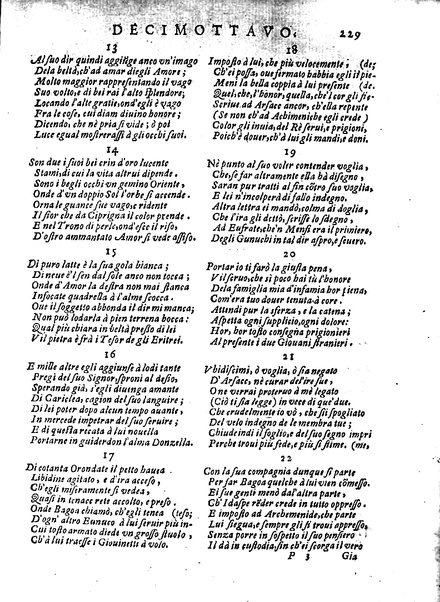 DECIMOTTAVO. 229
13
Al suo dir quindi aggiũge anco un'imago
Dela beltà, ch'ad amar diegli Amore;
Molto maggior rappresentando il vago
Suo volto, e di bei rai l'alto splendore;
Locando l'alte gratie, ond'egli è vago
Fra le cose, cui diam divino honore;
Dicendo, che nè pria si vide; ò poi
Luce egual mostrerassi à gli occhi suoi.
14
Son due i suoi bei crin d'oro lucente
Stami, di cui la vita altrui dipende.
Sono i begli occhi un gemino Oriente,
Onde d'un doppio Sol l'orbe, si accende.
Orna le guance sue vago, e ridente
Il fior che da Ciprigna il color prende.
E nel Trono di perle, ond'esce il riso,
D'ostro ammantato Amor si vede assiso.
15
Di puro latte è la sua gola bianca;
Di neve è'l sen dal sole anco non tocca;
Onde d'Amor la destra non mai stanca
Infocate quadrella à l'alme scocca.
Oue il soggetto abbonda il dir mi manca;
Non può lodarla à pien terrena bocca:
Qual più chiara in beltà presso di lei
Vil pietra è frà i Tesor de gli Eritrei.
16
E mille altre egli aggiunse à lodi tante
Pregi del suo Signor sproni al desio,
Sperando già, s'egli diuenga amante
Di Cariclea, cagion del suo languire;
Di lei poter dopo alcun tempo auante,
In mercede impetrar del suo seruire;
E di questa recata à lui nouella
Portarne in guiderdon l'alma Donzella.
17
Di cotanta Orondate il petto hauea
Libidine agitato, e d'ira acceso,
Ch'egli miseramente si vedea,
Quasi in tenace rete accolto, e preso.
Onde Bagoa chiamò, ch'egli tenea (teso;
D'ogn'altro Eunuco à lui seruir più in-
Cui tosto armato diede un grosso stuolo,
Ch'à lui traesse i Giouinetti à volo.
18
Imposto à lui, che più velocemente; (de;
Ch'ei possa, oue firmato habbia egli il pie-
Meni la bella coppia à lui presente (de
Quel, che, l'honor, quella, che'l cor gli fie-
Scriue ad Arsace ancor, ch'ella repente
(Se non eb'ad Achimeni che egli crede)
Color gli inuia, del Rè serui, e prigioni,
Poich'è douer, ch'à lui gli mandi, e doni.
19
Nè punto al suo voler contender voglia,
Che, se far altramente ella hà disegno,
Saran pur tratti al fin cõtro suo voglia,
E lei n'incolperà di fallo indegno.
Altra lettra ei mandò, colma di doglia,
Che l'ira gli dettò, scrisse lo sdegno,
Ad Eufrate, che'n Menfi era il primiero,
Degli Eunuchi in tal dir aspro, e seuero.
20
Portar io ti farò la giusta pena,
Vil seruo, che si poco hai tù l'honore
Dela famiglia mia d'infamia hor piena,
Com'era tuo douer tenuto à core.
Attendi pur la sferza, e la catena;
Aspetta ogni supplicio, ogni dolore:
Hor, hor tosto consegna prigionieri
Al presente i due Giouani stranieri.
21
Vbidisimi, ò voglia, ò sia negato
D'Arsace, nè curar del'ire sue,
One verrai proterno à mè legato
(Ciò ti sia legge) in vece de que' due.
Che crudelmente io vò, che sij spogliato
Del velo indegno de le membra tue;
Chiude indi il foglio, e del suo segno impri
Perche troui più fede, e più si stime. (me,
22
Con la sua compagnia dunque si parte
Per far Bagoa quel che à lui vien cõmesso.
Ei sue genti menò dal'altra parte,
Ch'Idaspe réder crede in tutto oppresso.
E imposto ad Archemenide, che parte
Lui siegua, e sempre gli si troui appresso,
Senza porre in sospetto il suo pensiero
Il dà in custodia, sin ch'ei scorga il vero
P 3 Gia